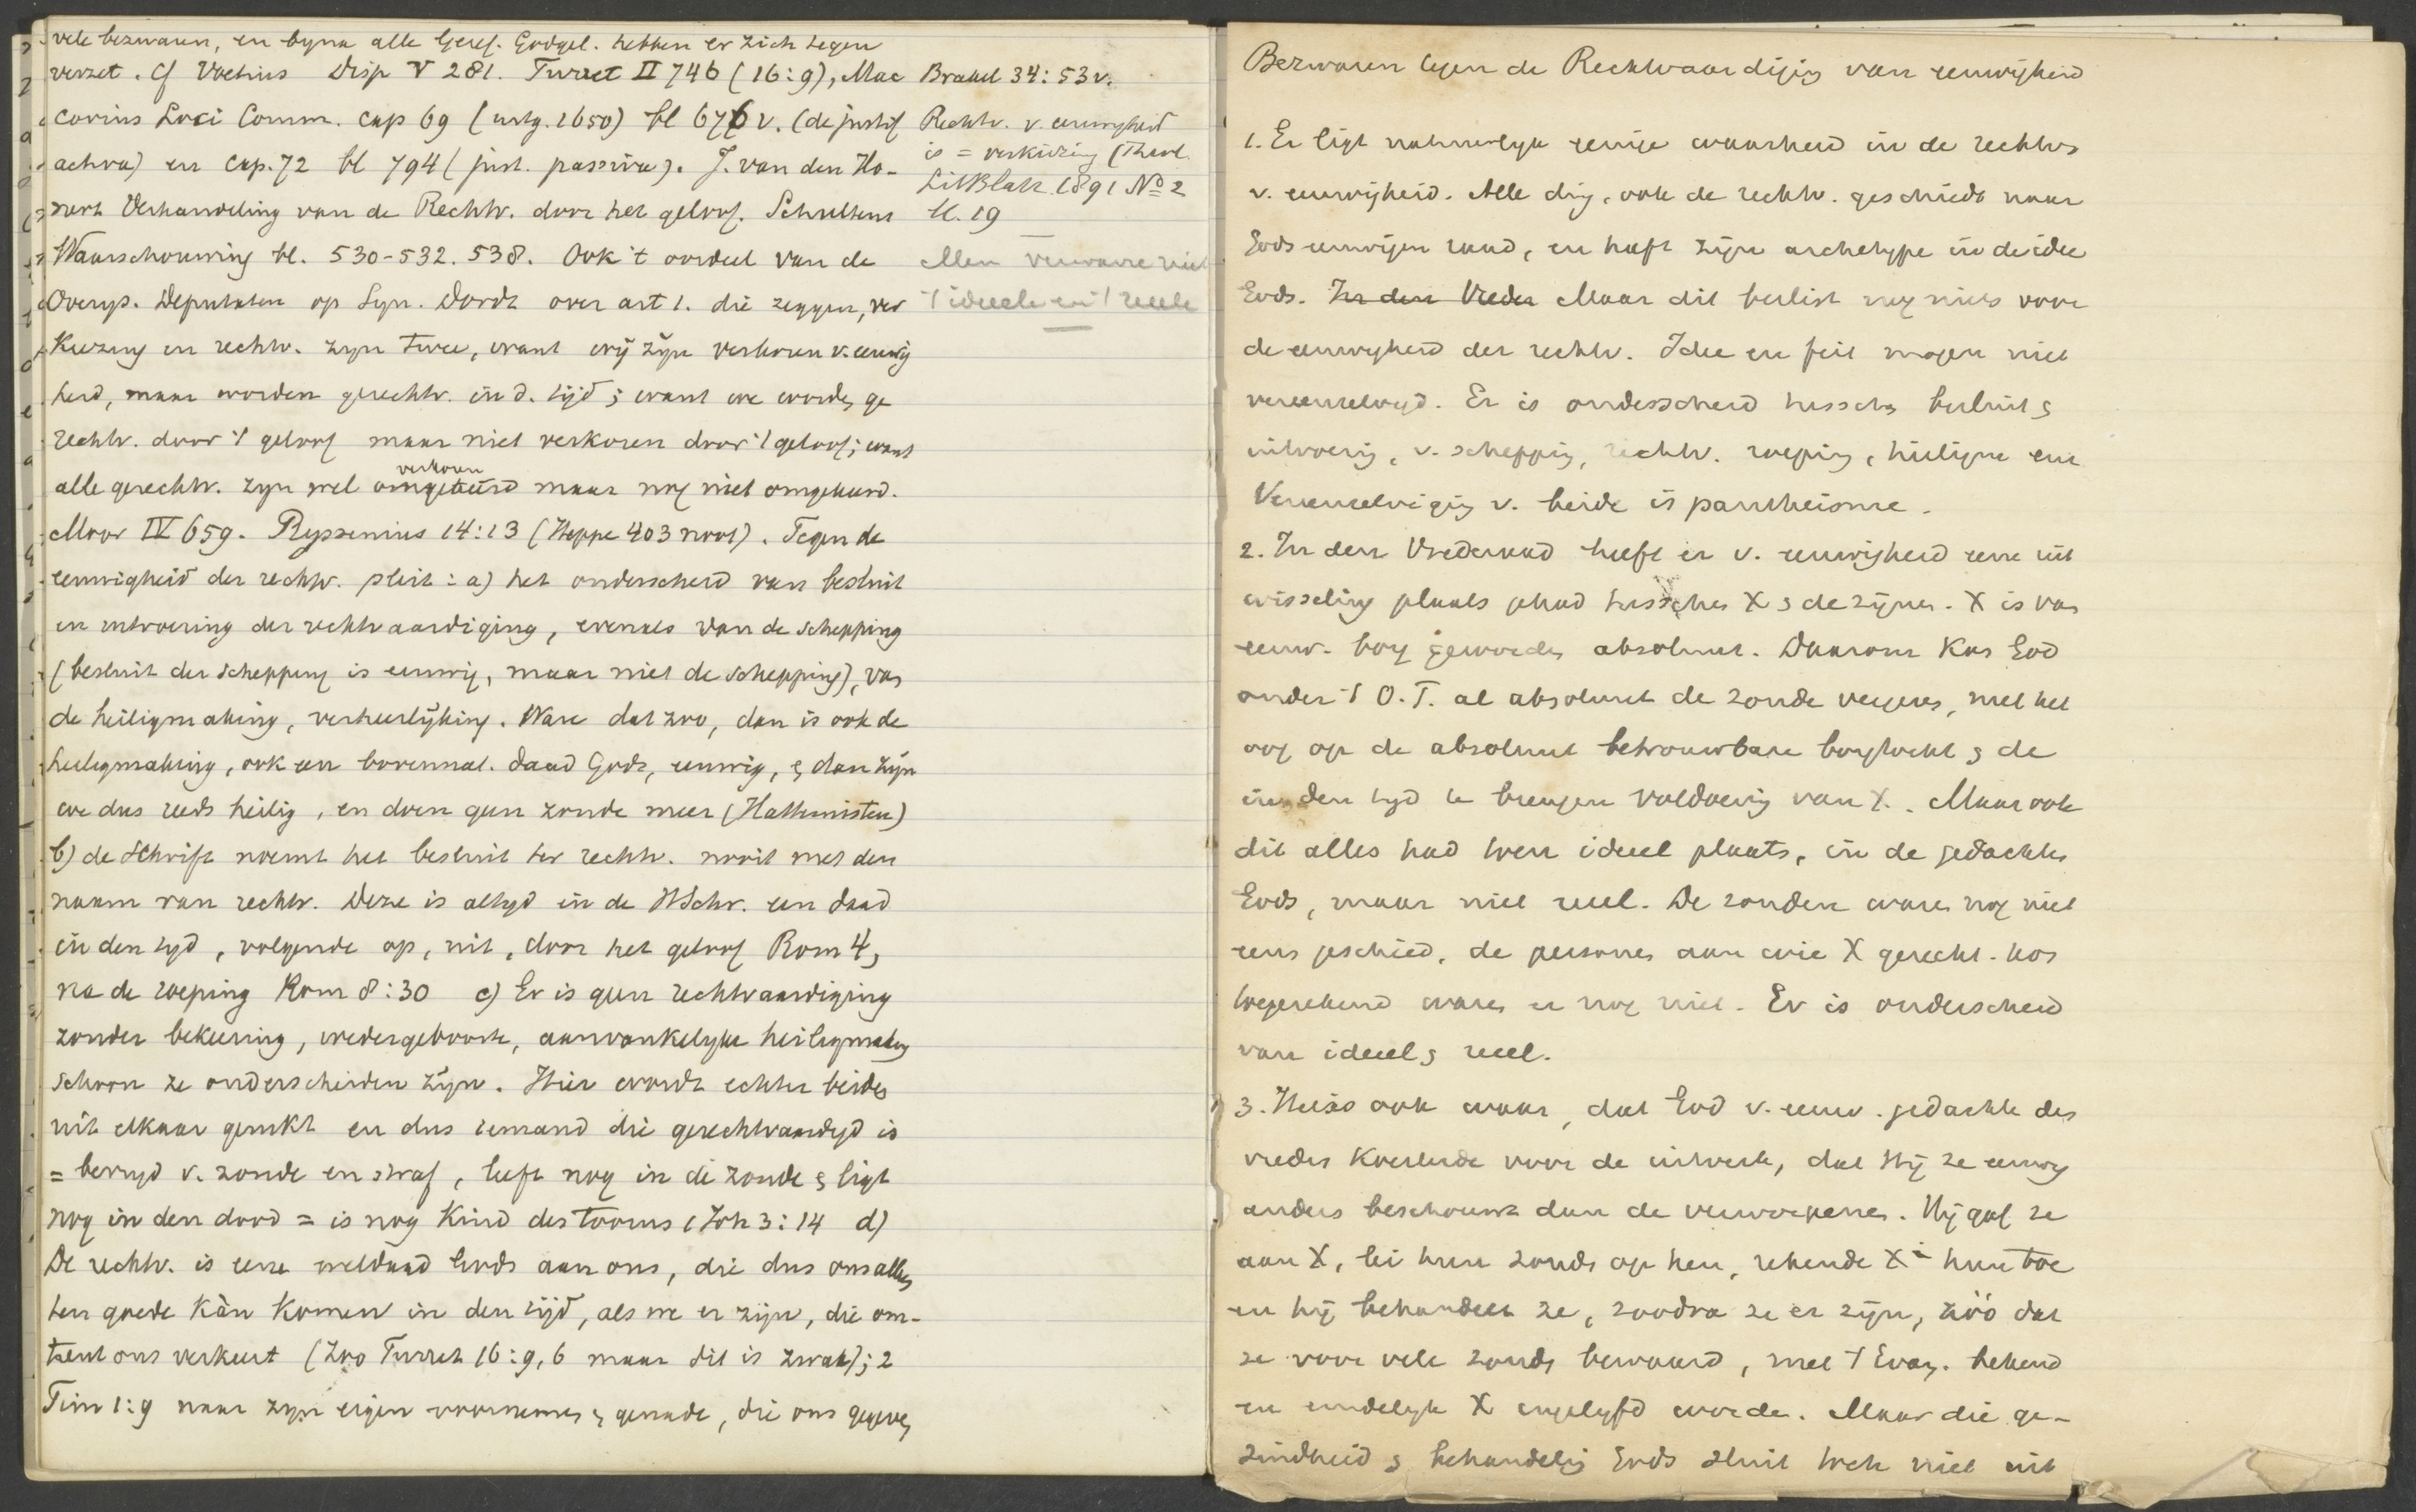 vele bezwaren, en byna alle Geref. Godgel. hebben er zich tegen
verzet. Cf Voetius Disp V 281. Turret II 746 (16:9), Mac
covius Loci Comm. cap 69 (uitg. 1650) bl 676 v. (de justif
activa) en cap. 72 bl 794 (just. passiva). J. van den Ho-
nert Verhandeling van de Rechtv. door het geloof. Schultens
Waarschouwing bl. 530-532. 538. Ook 't oordeel van de
Overys. Deputaten op Syn. Dordt over art 1. die zeggen, ver
kiezing en rechtv. zyn twee, want wij zijn verkoren v. eeuwig
heid, maar worden gerechtv. in d. tijd; want we worden ge
rechtv. door 't geloof maar niet verkoren door 't geloof; want
verkoren
alle gerechtv. zyn wel omgekeerd maar nog niet omgekeerd.
Moor IV 659. Ryssenius 14:13 (Heppe 403 noot). Tegen de
eeuwigheid der rechtv. pleit: a) het onderscheid van besluit
en uitvoering der rechtvaardiging, evenals van de schepping
(besluit der schepping is eeuwig, maar niet de schepping), van
de heiligmaking, verheerlijking. Ware dat zoo, dan is ook de
heiligmaking, ook een bovennat. daad Gods, eeuwig, & dan zijn
we dus reeds heilig, en doen geen zonde meer (Hattemisten)
b) de Schrift noemt het besluit ter rechtv. nooit met den
naam van rechtv. Deze is altyd in de HSchr. een daad
in den tyd, volgende op, uit, door het geloof Rom 4,
na de roeping Rom 8:30 c) Er is geen rechtvaardiging
zonder bekeering, wedergeboorte, aanvankelyke heiligmaking
schoon ze onderscheiden zijn. Hier wordt echter beides
uit elkaar gerukt en dus iemand die gerechtvaardigd is
= bevryd v. zonde en straf, leeft nog in de zonde & ligt
nog in den dood = is nog kind des toorns 1 Joh 3:14 d)
De rechtv. is eene weldaad Gods aan ons, die dus ons alleen
ten goede kàn komen in den tijd, als we er zijn, die om-
trent ons verkeert (Zoo Turret 16:9, 6 maar dit is zwak); 2
Tim 1:9 naar zyn eigen voornemen & genade, die ons gegeven
Brakel 34:53 v.
Rechtv. v. eeuwigheid
is = verkiezing (Theol.
LitBlatt 1891 No 2
bl. 19
Men verwarre niet
't ideele en 't reele
Bezwaren tegen de Rechtvaardigig van eeuwigheid
1. Er ligt natuurlyk eenige waarheid in de rechtv
v. eeuwigheid. Alle ding, ook de rechtv. geschiedt naar
Gods eeuwigen raad, en heeft zijn archetype in de idee
Gods. In den Vreder Maar dit beslist nog niets voor
de eeuwigheid der rechtv. Idee en feit mogen niet
vereenzelvigd. Er is onderscheid tusschen besluit &
uitvoerig, v. schepping, rechtv. roeping, heiligm enz
Vereenzelvigig v. beide is pantheisme.
2. In den Vrederaad heeft er v. eeuwigheid eene uit
wisseling plaats gehad tusschen X & de zijnen. X is van
eeuw. borg geworden absoluut. Daarom kon God
onder 't O.T. al absoluut de zonde vergeven, met het
oog op de absoluut betrouwbare borgtocht & de
in den tyd te brengen voldoening van X. Maar ook
dit alles had toen ideel plaats, in de gedachte
Gods, maar niet reeel. De zonden waren nog niet
eens geschied, de personen aan wie X gerecht. kon
toegerekend waren er nog niet. Er is onderscheid
van ideeel & reeel.
3. Het is ook waar, dat God v. eeuw. gedachte des
vredes koesterde voor de uitverk, dat Hij ze eeuwig
anders beschouwt dan de verworpenen. Hij gaf ze
aan X, lei hun zonde op hen, rekende X hun toe
en hij behandelt ze, zoodra ze er zijn, zóó dat
ze voor vele zonde bewaard, met 't Evang. bekend
en eindelyk X ingelyfd worde. Maar die ge-
zindheid & behandelig Gods sluit toch niet uit